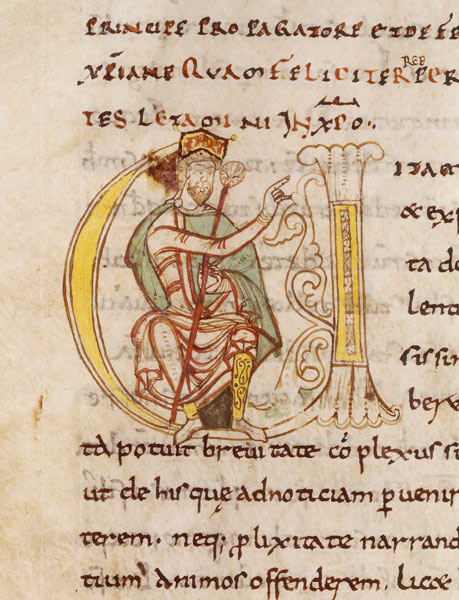 PRINCIPE PROPAGATORE ET DEFE
XPIANE QUAM FELICITER PER
TES LETAMINI IN XPO.
ITAM
& EXP
ta do
lenti
sissi
bere
ta potuit brevitate cō plexus s
ut de his quę ad noticiam p̄venir
terem. neq; p̱lixitate narrand
tium animos offenderem. licæ